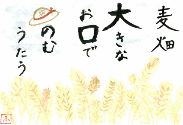 麦畑
大きな
お口で
のむ
うたう